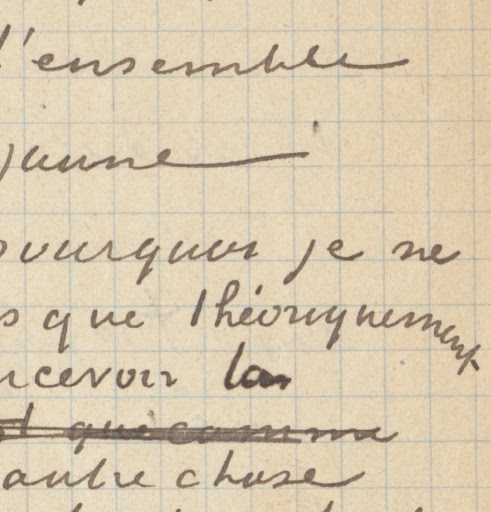 l'ensemble
jaune
pourquoi je ne
s que théoriquement
ncevoir
que comme
autre chose